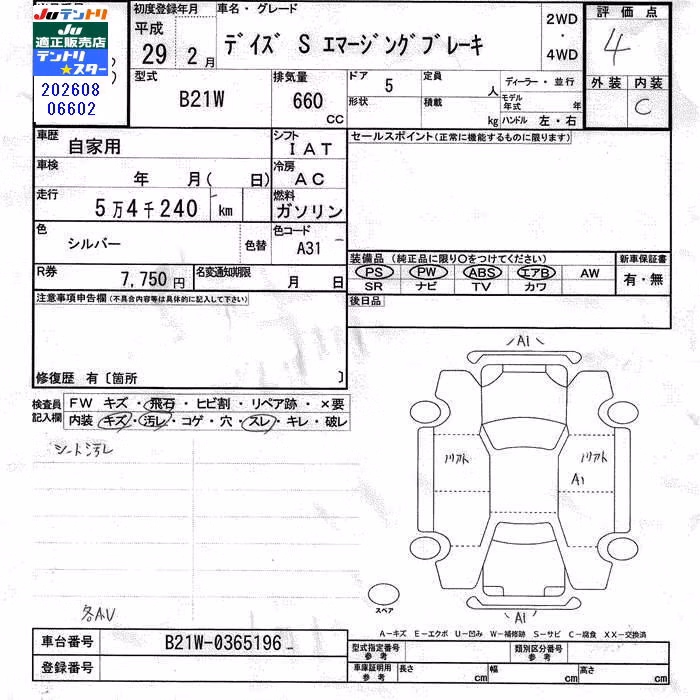 Juテントリ
Ju
適正販売店
テントリ
★スター
202608
06602
初度登録年月
平成
29年2月
車名・グレード
デイズ S エマージングブレーキ
2WD
・
4WD
評価点
4
外装 内装
C
型式
B21W
排気量
660
CC
ドア
5
形状
定員
人
積載
kg
ディーラー・並行
モデル年式 年
ハンドル 左・右
車歴
自家用
シフト
IAT
車検
年 月( 日)
冷房
AC
走行
5万4千240 km
燃料
ガソリン
色
シルバー
色替
色コード
A31
R券
7,750円
名変通知期限
月 日
セールスポイント(正常に機能するものに限ります)
装備品(純正品に限り○をつけてください)
PS PW ABS エアB AW
SR ナビ TV カワ
新車保証書
有・無
後日品
注意事項申告欄(不具合内容等は具体的に記入して下さい)
修復歴 有〔箇所 〕
検査員
記入欄
FW キズ・飛石・ヒビ割・リペア跡・×要
内装 キズ・汚レ・コゲ・穴・スレ・キレ・破レ
シート汚レ
各AU
A1
A1
A1
スペア
A−キズ E−エクボ U−凹み W−補修跡 S−サビ C−腐食 XX−交換済
車台番号
B21W-0365196
登録番号
型式指定番号
参考
類別区分番号
参考
車庫証明用
参考
長さ cm
幅 cm
高さ cm